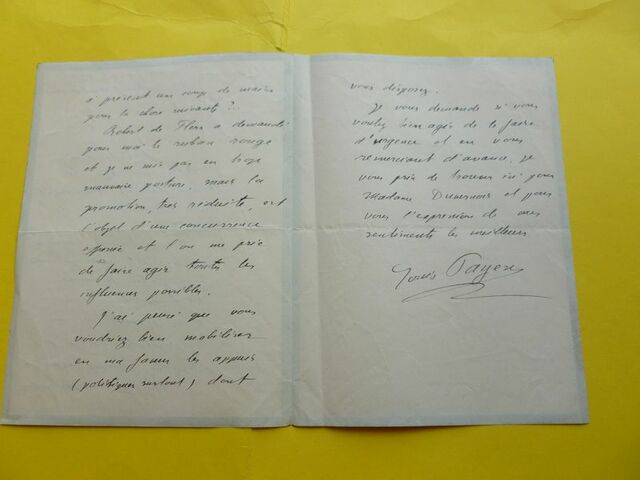 à présent un coup de main
pour la chose suivante ?..
Robert de Flers a demandé
pour moi le ruban rouge
et je ne suis pas en trop
mauvaise posture, mais la
promotion, très réduite, est
l'objet d'une concurrence
et l'on me prie
de faire agir toutes les
influences possibles.
J'ai pensé que vous
voudriez bien mobiliser
en ma faveur les appuis
(politiques surtout) dont
vous disposez.
Je vous demande si vous
voulez bien agir de le faire
d'urgence et en vous
remerciant d'avance, je
vous prie de trouver ici pour
Madame Duvernois et pour
vous l'expression de mes
sentiments les meilleurs
Louis Payen